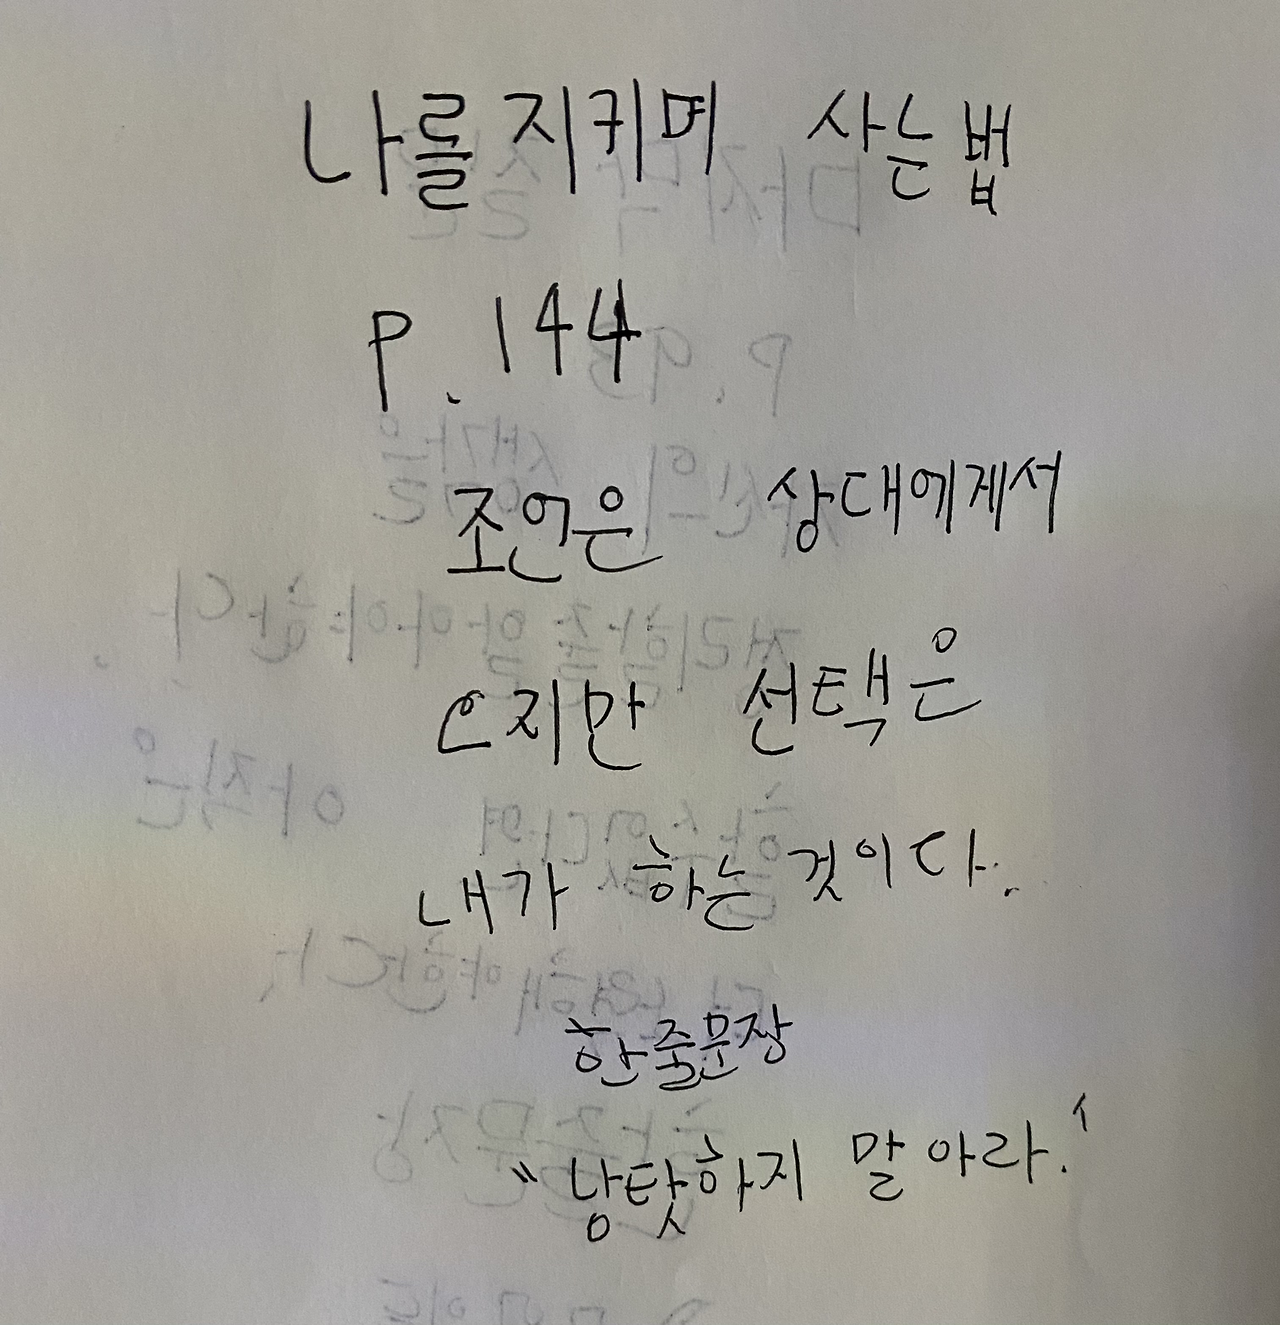 나를 지키며 사는 법
P. 144
조언은 상대에게서
오지만 선택은
내가 하는 것이다.
한줄문장
"낭탓하지 말아라.'